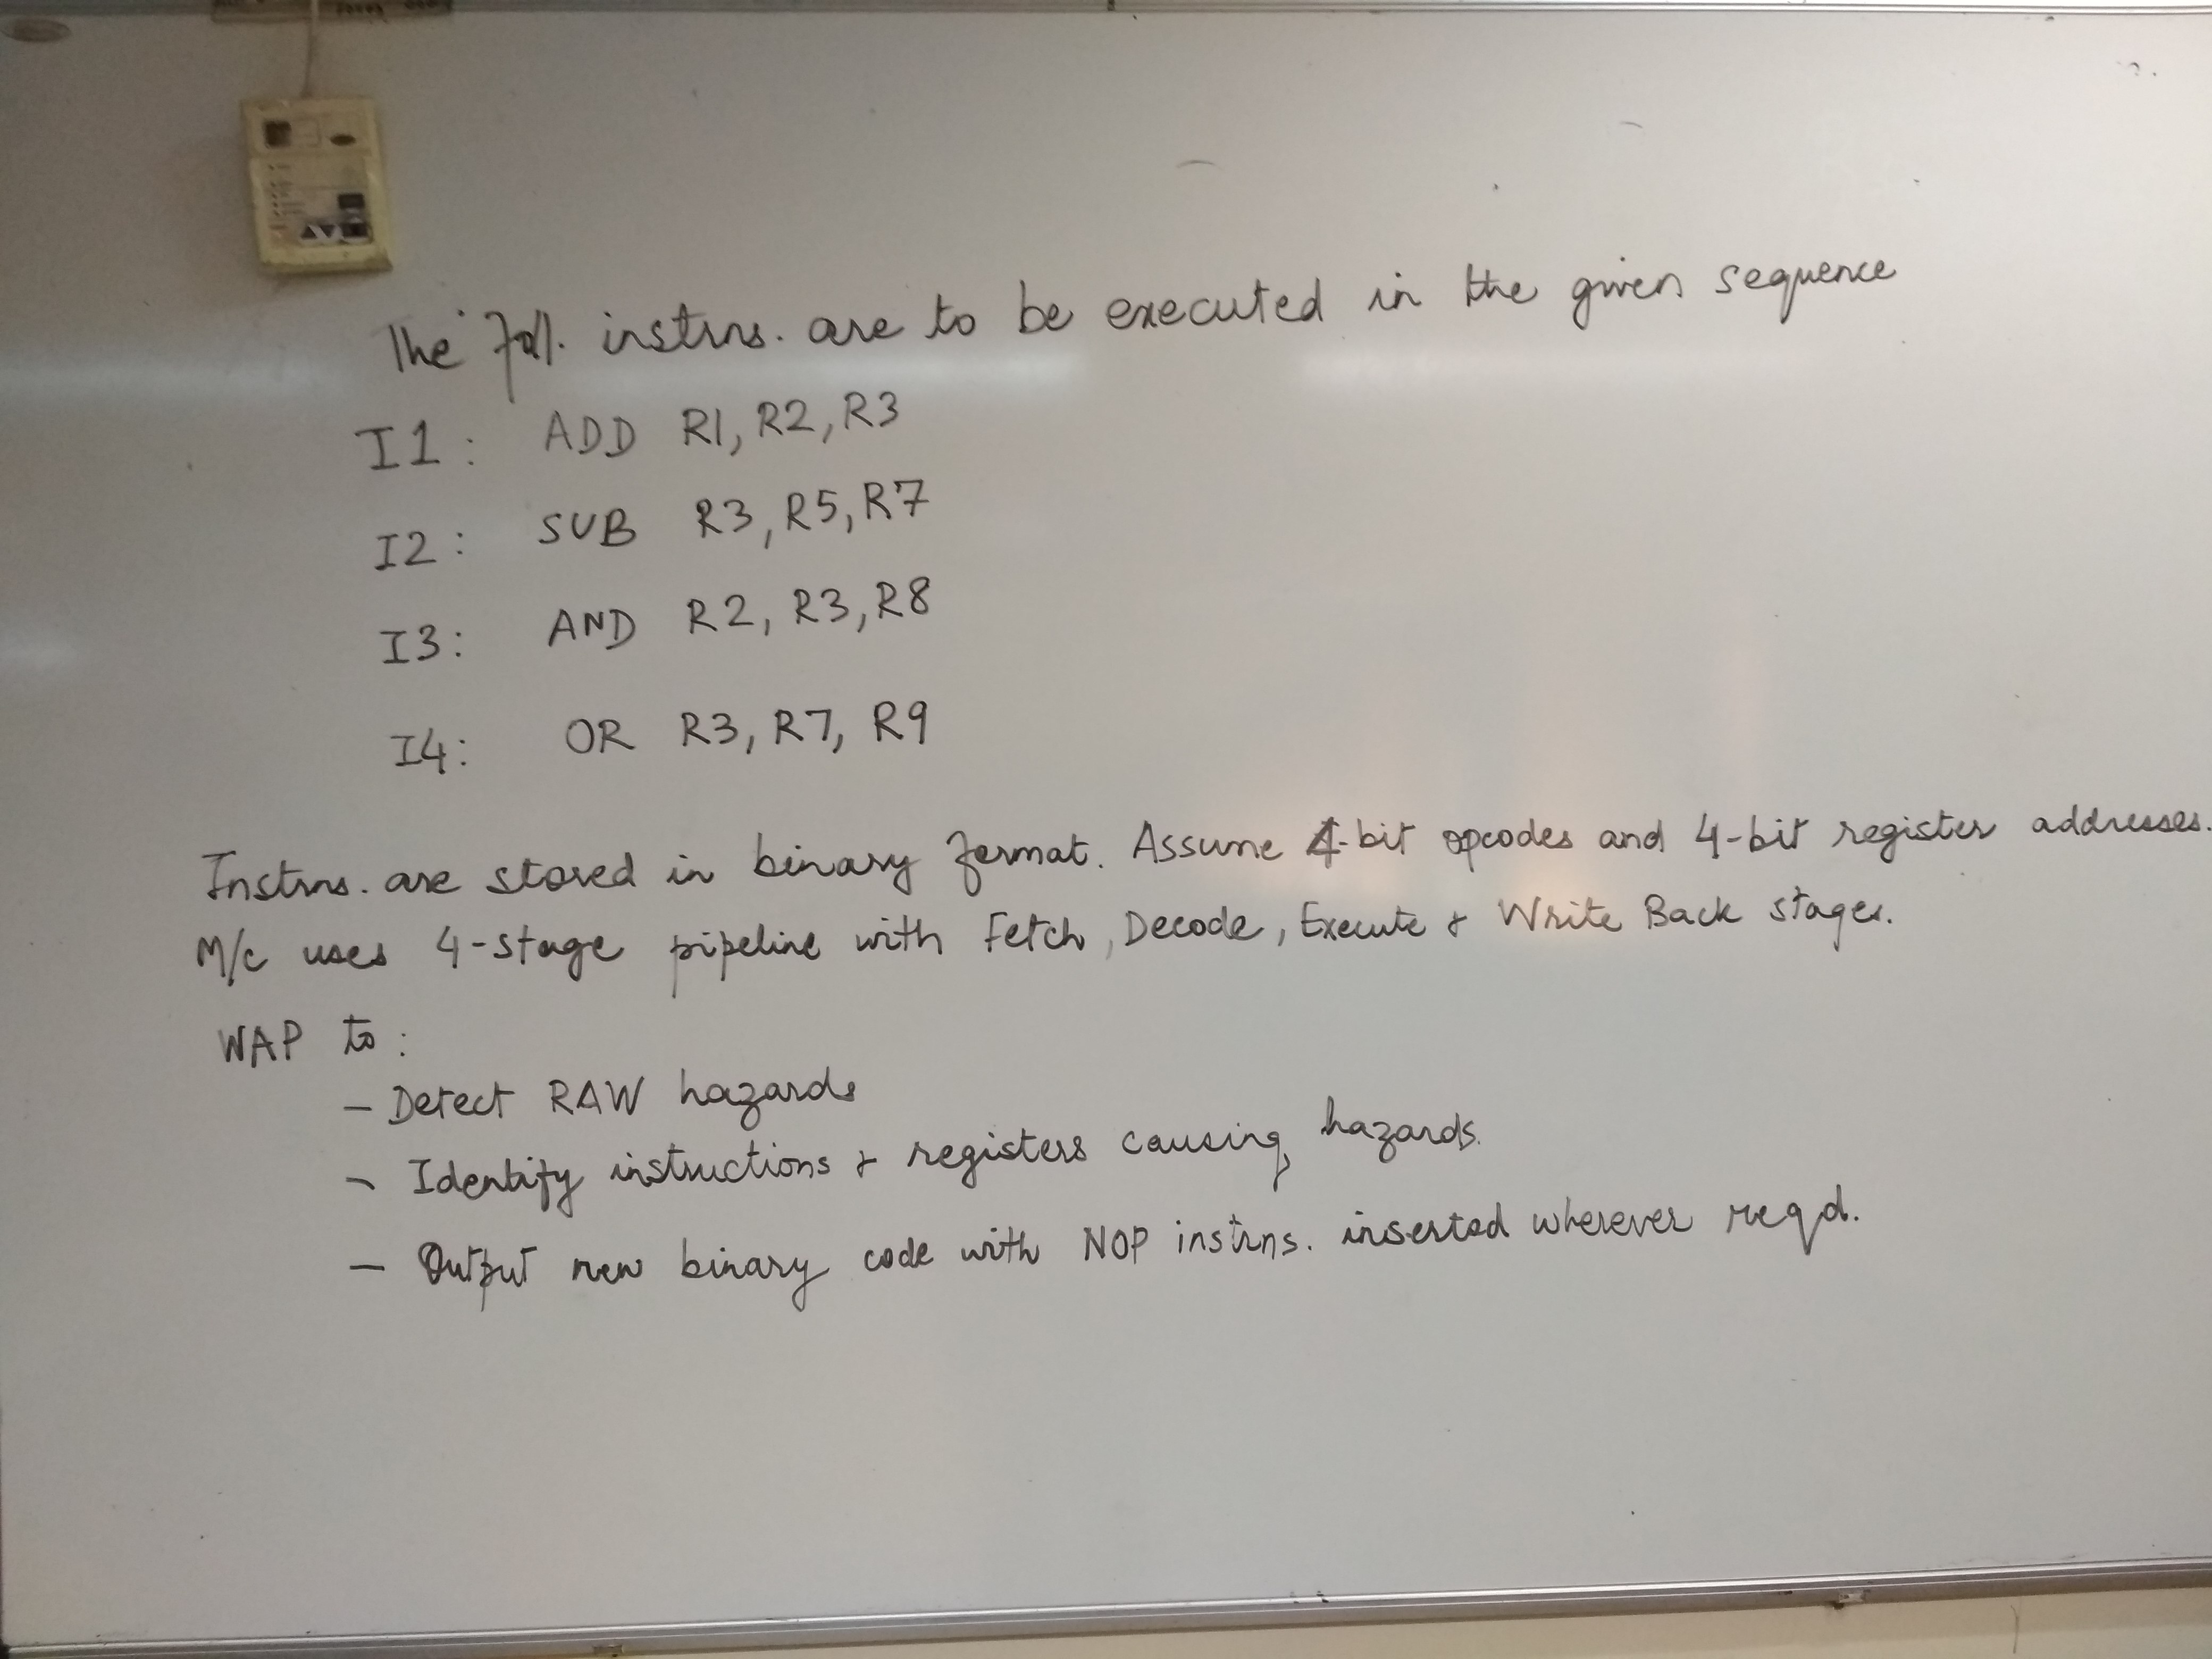 The foll. instrns. are to be executed in the given sequence
I1: ADD R1, R2, R3
I2: SUB R3, R5, R7
I3: AND R2, R3, R8
I4: OR R3, R7, R9
Instrns. are stored in binary format. Assume 4-bit opcodes and 4-bit register addresses.
M/c uses 4-stage pipeline with Fetch, Decode, Execute & Write Back stages.
WAP to:
- Detect RAW hazards
- Identify instructions & registers causing hazards.
- Output new binary code with NOP instrns. inserted wherever reqd.